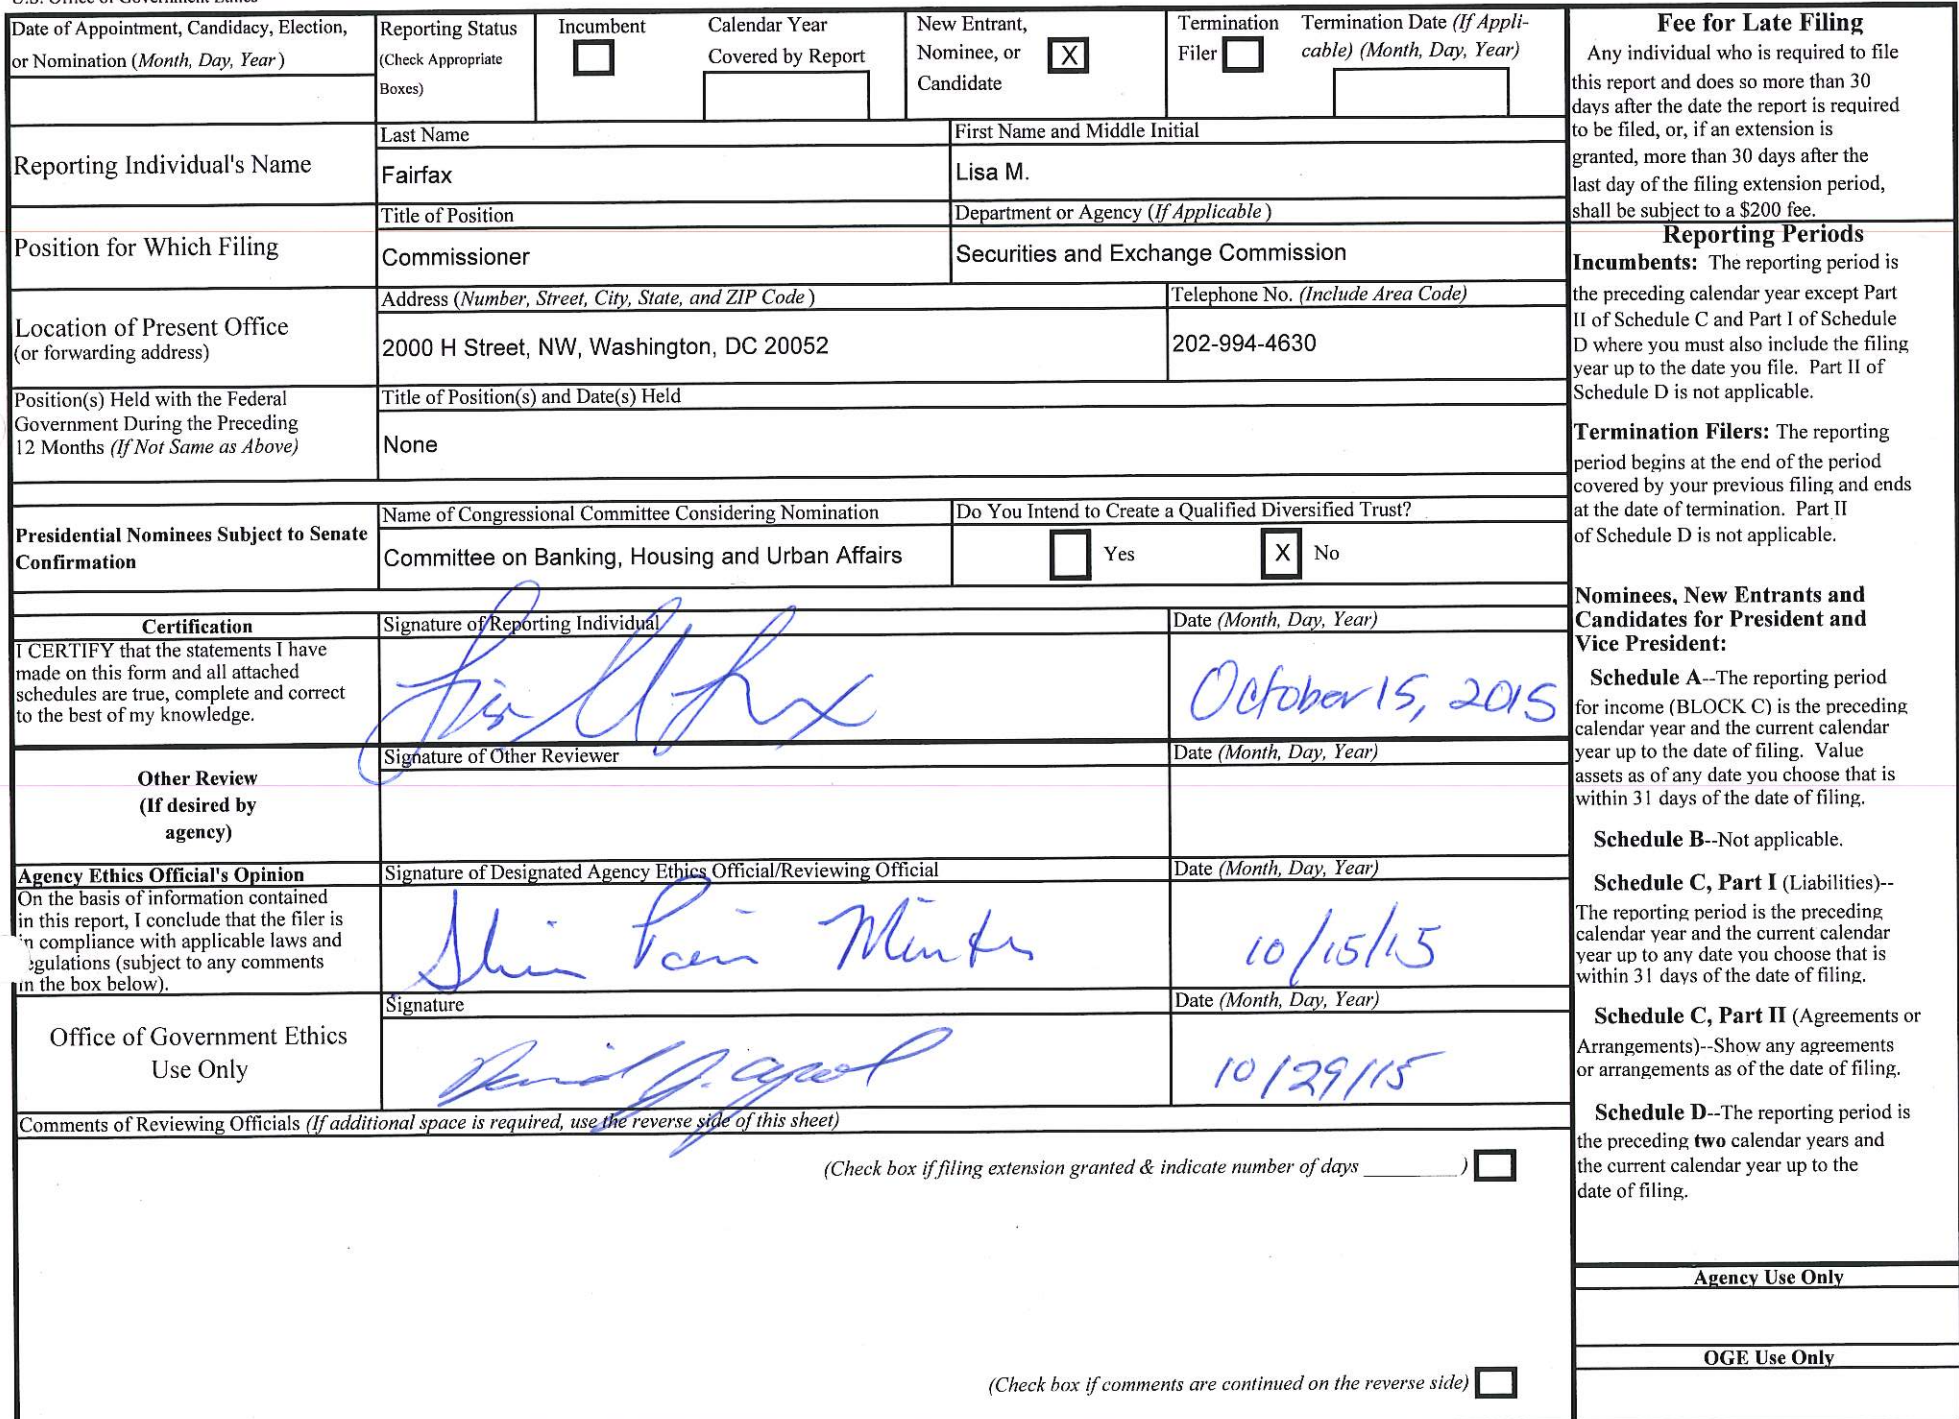 Date of Appointment, Candidacy, Election,
or Nomination (Month, Day, Year)
Reporting Status
(Check Appropriate
Boxes)
Incumbent
Calendar Year
Covered by Report
New Entrant,
Nominee, or
Candidate
X
Termination
Filer
Termination Date (If Appli-
cable) (Month, Day, Year)
Reporting Individual's Name
Last Name
Fairfax
First Name and Middle Initial
Lisa M.
Position for Which Filing
Title of Position
Commissioner
Department or Agency (If Applicable)
Securities and Exchange Commission
Location of Present Office
(or forwarding address)
Address (Number, Street, City, State, and ZIP Code)
2000 H Street, NW, Washington, DC 20052
Telephone No. (Include Area Code)
202-994-4630
Position(s) Held with the Federal
Government During the Preceding
12 Months (If Not Same as Above)
Title of Position(s) and Date(s) Held
None
Presidential Nominees Subject to Senate
Confirmation
Name of Congressional Committee Considering Nomination
Committee on Banking, Housing and Urban Affairs
Do You Intend to Create a Qualified Diversified Trust?
Yes
X No
Certification
I CERTIFY that the statements I have
made on this form and all attached
schedules are true, complete and correct
to the best of my knowledge.
Signature of Reporting Individual
Date (Month, Day, Year)
October 15, 2015
Other Review
(If desired by
agency)
Signature of Other Reviewer
Date (Month, Day, Year)
Agency Ethics Official's Opinion
On the basis of information contained
in this report, I conclude that the filer is
in compliance with applicable laws and
egulations (subject to any comments
in the box below).
Signature of Designated Agency Ethics Official/Reviewing Official
Date (Month, Day, Year)
10/15/15
Office of Government Ethics
Use Only
Signature
Date (Month, Day, Year)
10/29/15
Comments of Reviewing Officials (If additional space is required, use the reverse side of this sheet)
(Check box if filing extension granted & indicate number of days ________)
(Check box if comments are continued on the reverse side)
Fee for Late Filing
Any individual who is required to file
this report and does so more than 30
days after the date the report is required
to be filed, or, if an extension is
granted, more than 30 days after the
last day of the filing extension period,
shall be subject to a $200 fee.
Reporting Periods
Incumbents: The reporting period is
the preceding calendar year except Part
II of Schedule C and Part I of Schedule
D where you must also include the filing
year up to the date you file. Part II of
Schedule D is not applicable.
Termination Filers: The reporting
period begins at the end of the period
covered by your previous filing and ends
at the date of termination. Part II
of Schedule D is not applicable.
Nominees, New Entrants and
Candidates for President and
Vice President:
Schedule A--The reporting period
for income (BLOCK C) is the preceding
calendar year and the current calendar
year up to the date of filing. Value
assets as of any date you choose that is
within 31 days of the date of filing.
Schedule B--Not applicable.
Schedule C, Part I (Liabilities)--
The reporting period is the preceding
calendar year and the current calendar
year up to any date you choose that is
within 31 days of the date of filing.
Schedule C, Part II (Agreements or
Arrangements)--Show any agreements
or arrangements as of the date of filing.
Schedule D--The reporting period is
the preceding two calendar years and
the current calendar year up to the
date of filing.
Agency Use Only
OGE Use Only